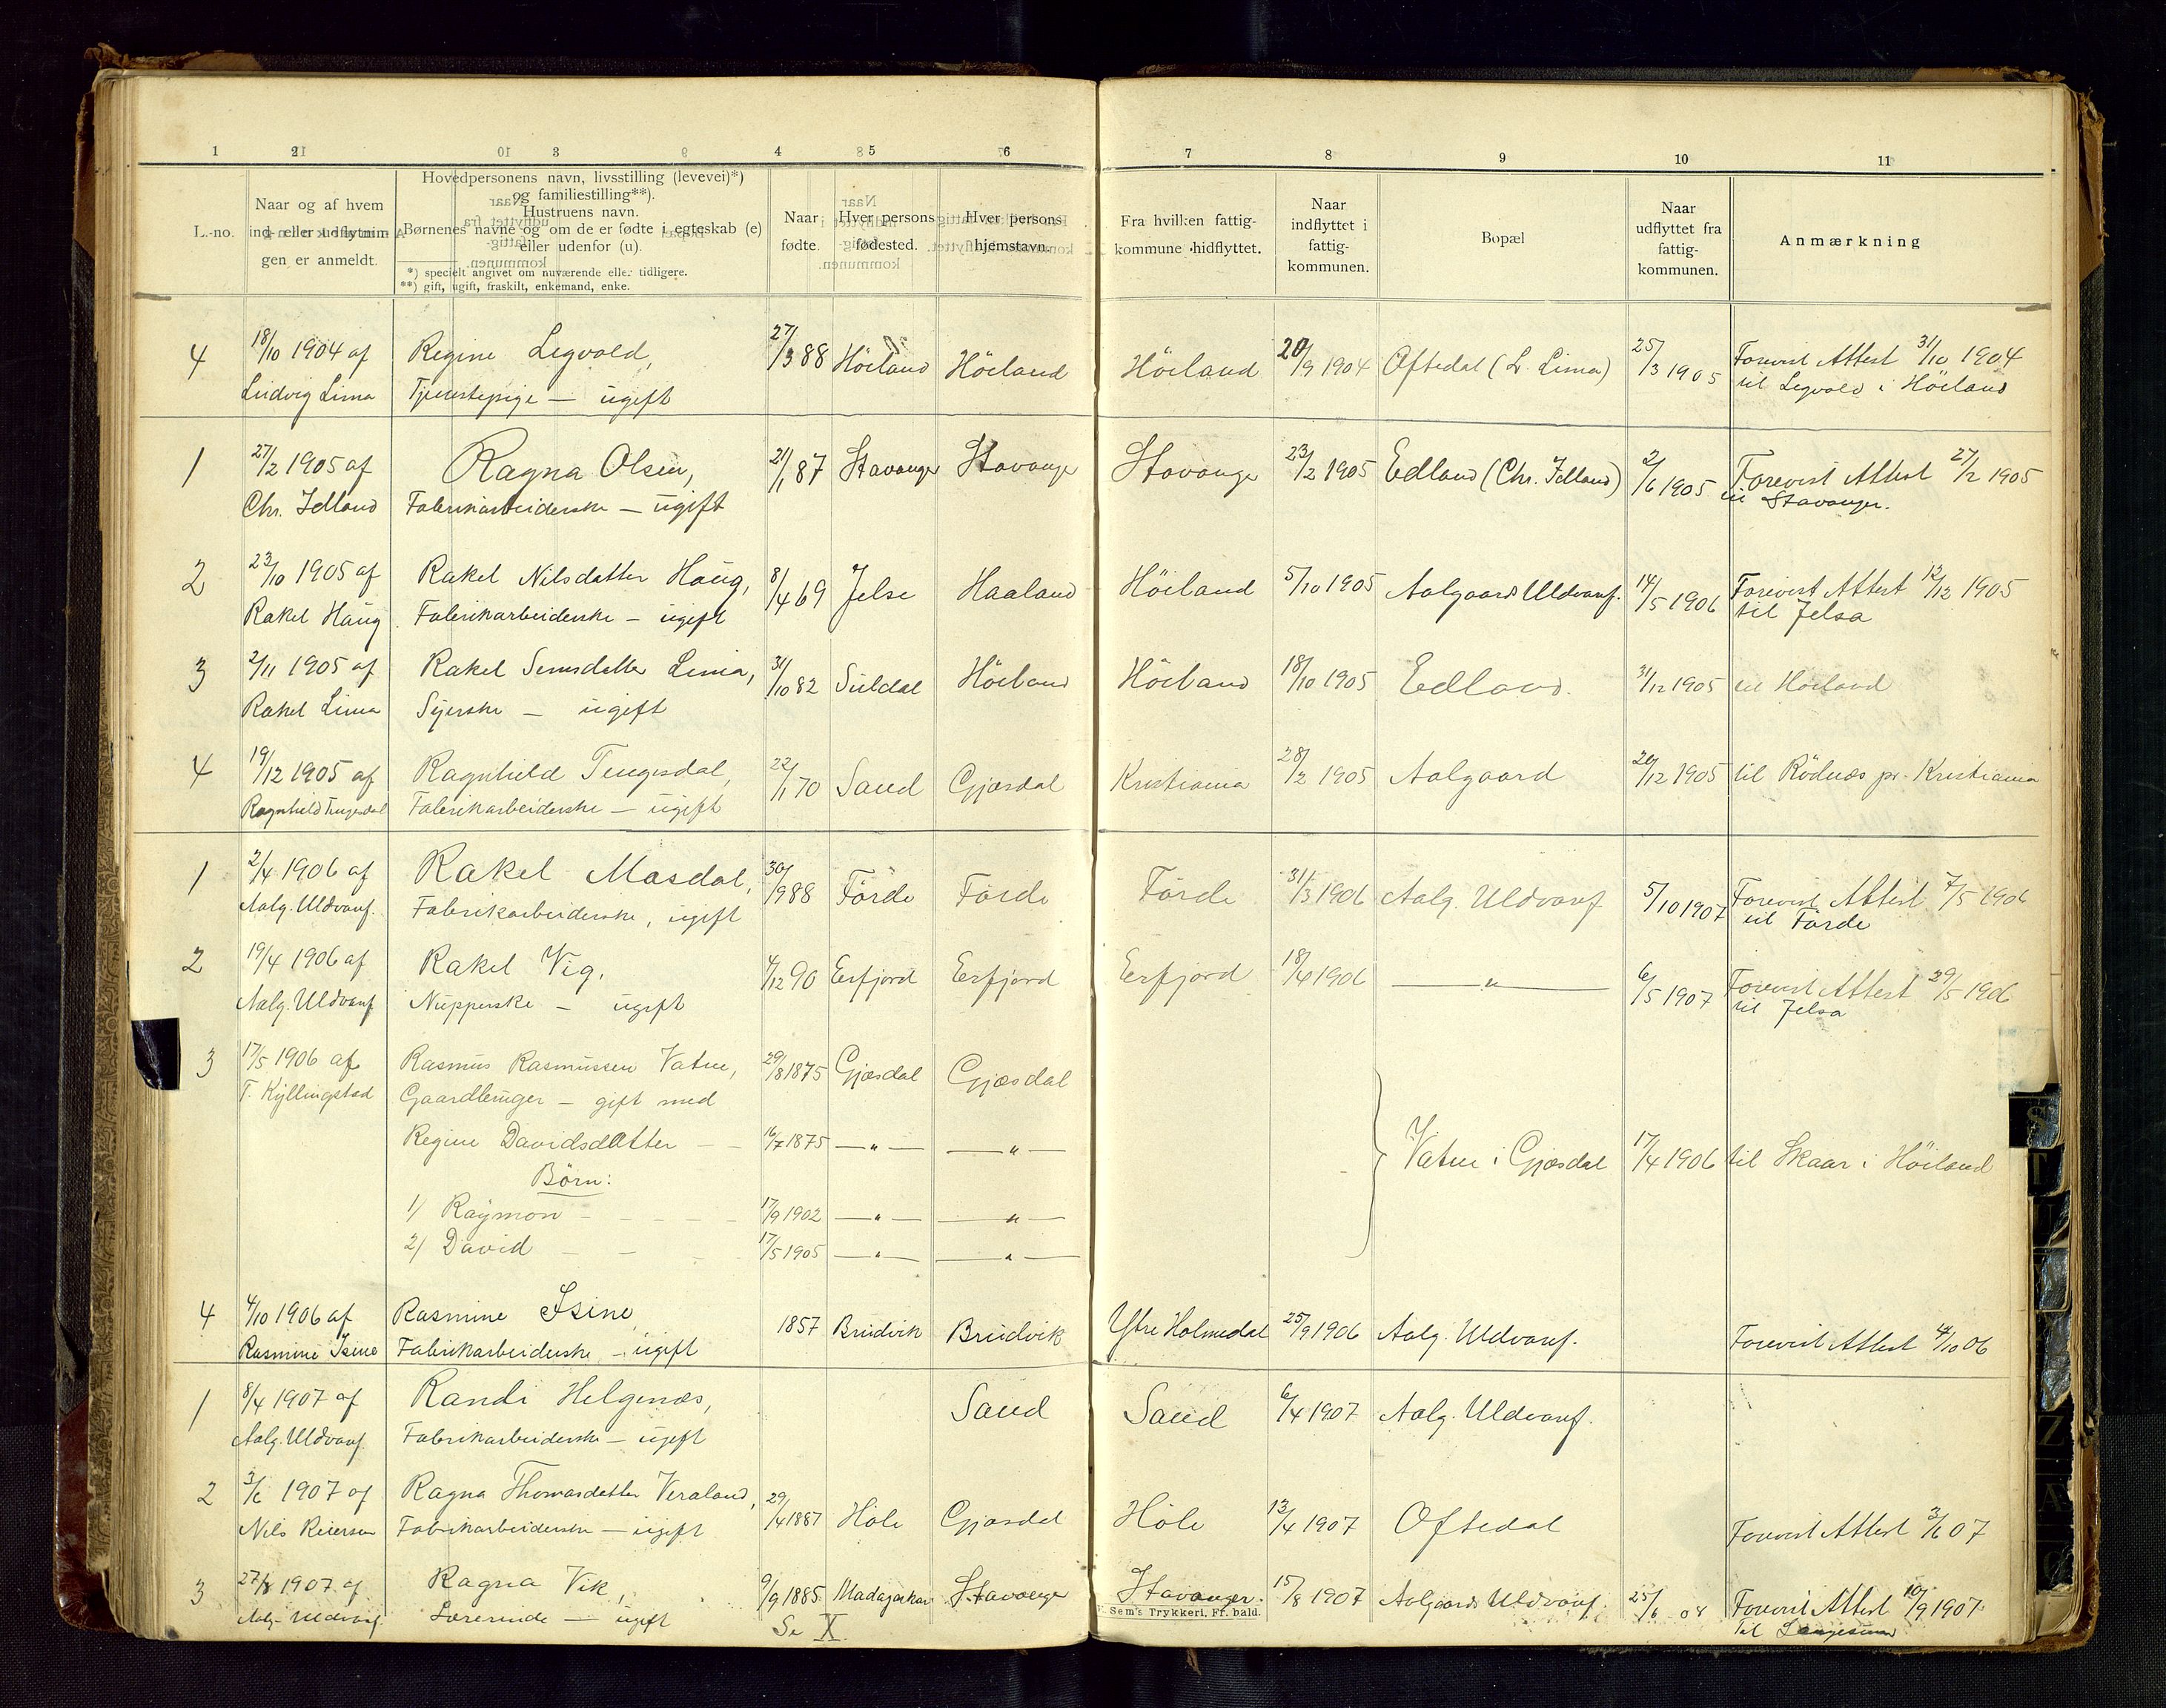 1 2 3 4 5 6 7 8 9 10 11
L.-no.
Naar og af hvem
ind- eller udflytnin-
gen er anmeldt.
Hovedpersonens navn, livsstilling (levevei)*)
og familiestilling**).
Hustruens navn.
Børnenes navne og om de er fødte i egteskab (e)
eller udenfor (u).
*) specielt angivet om nuværende eller tidligere.
**) gift, ugift, fraskilt, enkemand, enke.
Naar
fødte.
Hver persons
fødested.
Hver persons
hjemstavn.
Fra hvilken fattig-
kommune hidflyttet.
Naar
indflyttet i
fattig-
kommunen.
Bopæl
Naar
udflyttet fra
fattig-
kommunen.
Anmærkning
4 18/10 1904 af Regine Legvold, 27/3 88 Höiland Höiland Höiland 20/9 1904 Oftedal (L. Lima) 25/3 1905 Forevist Attest 31/10 1904
Ludvig Lima Tjenestepige — ugift til Legvold i Höiland
1 27/2 1905 af Ragna Olsen, 21/1 87 Stavanger Stavanger Stavanger 23/2 1905 Edland (Chr. Idland) 2/6 1905 Forevist Attest 27/2 1905
Chr. Idland Fabrikarbeiderske — ugift til Stavanger.
2 23/10 1905 af Rakel Nilsdatter Haug, 8/4 69 Jelse Haaland Höiland 5/10 1905 Aalgaards Uldvarf. 14/5 1906 Forevist Attest 12/12 1905
Rakel Haug Fabrikarbeiderske — ugift til Jelsa
3 2/11 1905 af Rakel Lima, 31/10 82 Suldal Höiland Höiland 18/10 1905 Edland. 31/12 1905 til Höiland
Rakel Lima Syerske — ugift
4 19/12 1905 af Ragnhild Tengesdal, 22/1 70 Sand Gjæsdal Kristiania 28/2 1905 Aalgaard 20/12 1905 til Rödnæs pr. Kristiania
Ragnhild Tengesdal Fabrikarbeiderske — ugift
1 2/4 1906 af Rakel Masdal, 30/9 88 Förde Förde Förde 31/3 1906 Aalg. Uldvarf 5/10 1907 Forevist Attest 7/5 1906
Aalg. Uldvarf. Fabrikarbeiderske, ugift til Förde
2 19/4 1906 af Rakel Vig, 4/12 90 Erfjord Erfjord Erfjord 18/4 1906 — " — 6/5 1907 Forevist Attest 29/5 1906
Aalg. Uldvarf Nupperske — ugift til Jelsa
3 17/5 1906 af Rasmus Rasmussen Vatne, 29/8 1875 Gjæsdal Gjæsdal
T. Kyllingstad Gaardbruger — gift med
Regine Davidsdatter — 16/7 1875 — " — — " — Vatne i Gjæsdal 17/4 1906 til Skaar i Höiland
Børn:
1) Raymon - - - - 17/9 1902 — " — — " —
2) David - - - 17/5 1905 — " — — " —
4 4/10 1906 af Rasmine Isine 1857 Bruvik Bruvik Ytre Holmedal 25/9 1906 Aalg. Uldvarf. Forevist Attest 4/10 06
Rasmine Isine Fabrikarbeiderske — ugift
1 8/4 1907 af Randi Helgenæs, Sand Sand 6/4 1907 Aalg. Uldvarf.
Aalg. Uldvarf. Fabrikarbeiderske — ugift
2 3/6 1907 af Ragna Thomasdatter Veraland, 29/4 1887 Höle Gjæsdal Höle 13/4 1907 Oftedal Forevist Attest 3/6 07
Nils Reiersen Fabrikarbeiderske — ugift
3 27/8 1907 af Ragna Vik, 9/9 1885 Madagaskar Stavanger Stavanger. 15/8 1907 Aalgaards Uldvarf. 25/6 08 Forevist Attest 10/9 1907
Aalg. Uldvarf. Lærerinde — ugift Se X Til Langesund
Sem's Trykkeri, Fr.hald.